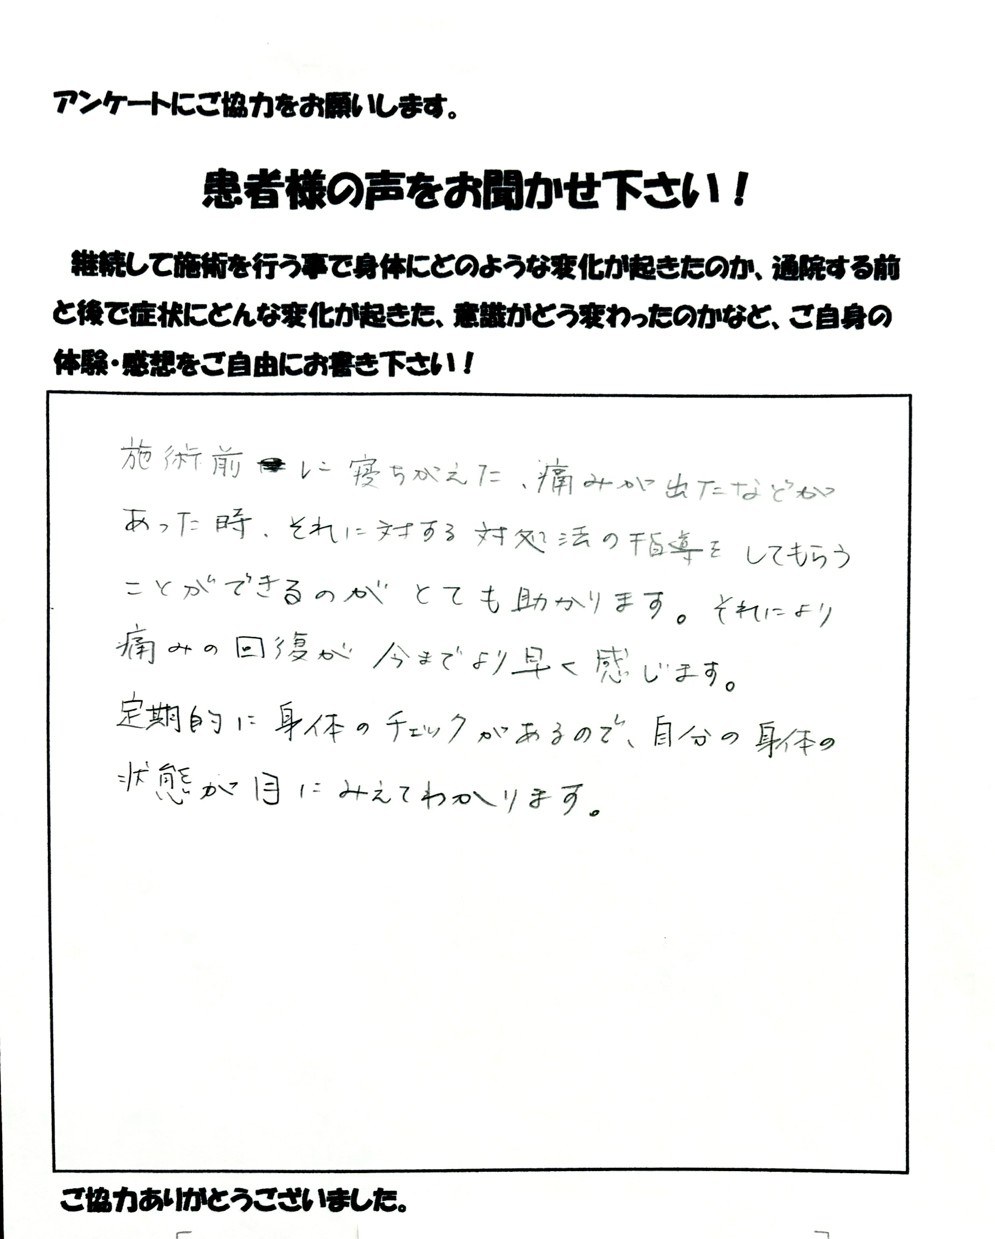 アンケートにご協力をお願いします。
患者様の声をお聞かせ下さい！
継続して施術を行う事で身体にどのような変化が起きたのか、通院する前
と後で症状にどんな変化が起きた、意識がどう変わったのかなど、ご自身の
体験・感想をご自由にお書き下さい！
施術前に寝ちがえた、痛みが出たなどが
あった時、それに対する対処法の指導をしてもらう
ことができるのがとても助かります。それにより
痛みの回復が今までより早く感じます。
定期的に身体のチェックがあるので、自分の身体の
状態が目にみえてわかります。
ご協力ありがとうございました。